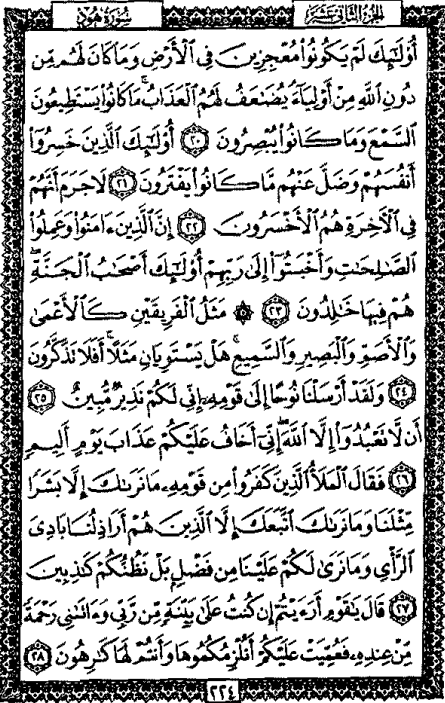 الجزء الثاني عشر
سورة هود
أُوْلَٰٓئِكَ لَمْ يَكُونُواْ مُعْجِزِينَ فِى ٱلْأَرْضِ وَمَا كَانَ لَهُم مِّن
دُونِ ٱللَّهِ مِنْ أَوْلِيَآءَ يُضَٰعَفُ لَهُمُ ٱلْعَذَابُ مَا كَانُواْ يَسْتَطِيعُونَ
ٱلسَّمْعَ وَمَا كَانُواْ يُبْصِرُونَ ٢٠ أُوْلَٰٓئِكَ ٱلَّذِينَ خَسِرُوٓاْ
أَنفُسَهُمْ وَضَلَّ عَنْهُم مَّا كَانُواْ يَفْتَرُونَ ٢١ لَا جَرَمَ أَنَّهُمْ
فِى ٱلْأَخِرَةِ هُمُ ٱلْأَخْسَرُونَ ٢٢ إِنَّ ٱلَّذِينَ ءَامَنُواْ وَعَمِلُواْ
ٱلصَّٰلِحَٰتِ وَأَخْبَتُوٓاْ إِلَىٰ رَبِّهِمْ أُوْلَٰٓئِكَ أَصْحَٰبُ ٱلْجَنَّةِ
هُمْ فِيهَا خَٰلِدُونَ ٢٣ ۞ مَثَلُ ٱلْفَرِيقَيْنِ كَٱلْأَعْمَىٰ
وَٱلْأَصَمِّ وَٱلْبَصِيرِ وَٱلسَّمِيعِ هَلْ يَسْتَوِيَانِ مَثَلًا أَفَلَا تَذَكَّرُونَ
٢٤ وَلَقَدْ أَرْسَلْنَا نُوحًا إِلَىٰ قَوْمِهِۦٓ إِنِّى لَكُمْ نَذِيرٌ مُّبِينٌ ٢٥
أَن لَّا تَعْبُدُوٓاْ إِلَّا ٱللَّهَ إِنِّىٓ أَخَافُ عَلَيْكُمْ عَذَابَ يَوْمٍ أَلِيمٍ
٢٦ فَقَالَ ٱلْمَلَأُ ٱلَّذِينَ كَفَرُواْ مِن قَوْمِهِۦ مَا نَرَىٰكَ إِلَّا بَشَرًا
مِّثْلَنَا وَمَا نَرَىٰكَ ٱتَّبَعَكَ إِلَّا ٱلَّذِينَ هُمْ أَرَاذِلُنَا بَادِىَ
ٱلرَّأْىِ وَمَا نَرَىٰ لَكُمْ عَلَيْنَا مِن فَضْلٍۭ بَلْ نَظُنُّكُمْ كَٰذِبِينَ
٢٧ قَالَ يَٰقَوْمِ أَرَءَيْتُمْ إِن كُنتُ عَلَىٰ بَيِّنَةٍ مِّن رَّبِّى وَءَاتَىٰنِى رَحْمَةً
مِّنْ عِندِهِۦ فَعُمِّيَتْ عَلَيْكُمْ أَنُلْزِمُكُمُوهَا وَأَنتُمْ لَهَا كَٰرِهُونَ ٢٨
٢٢٤